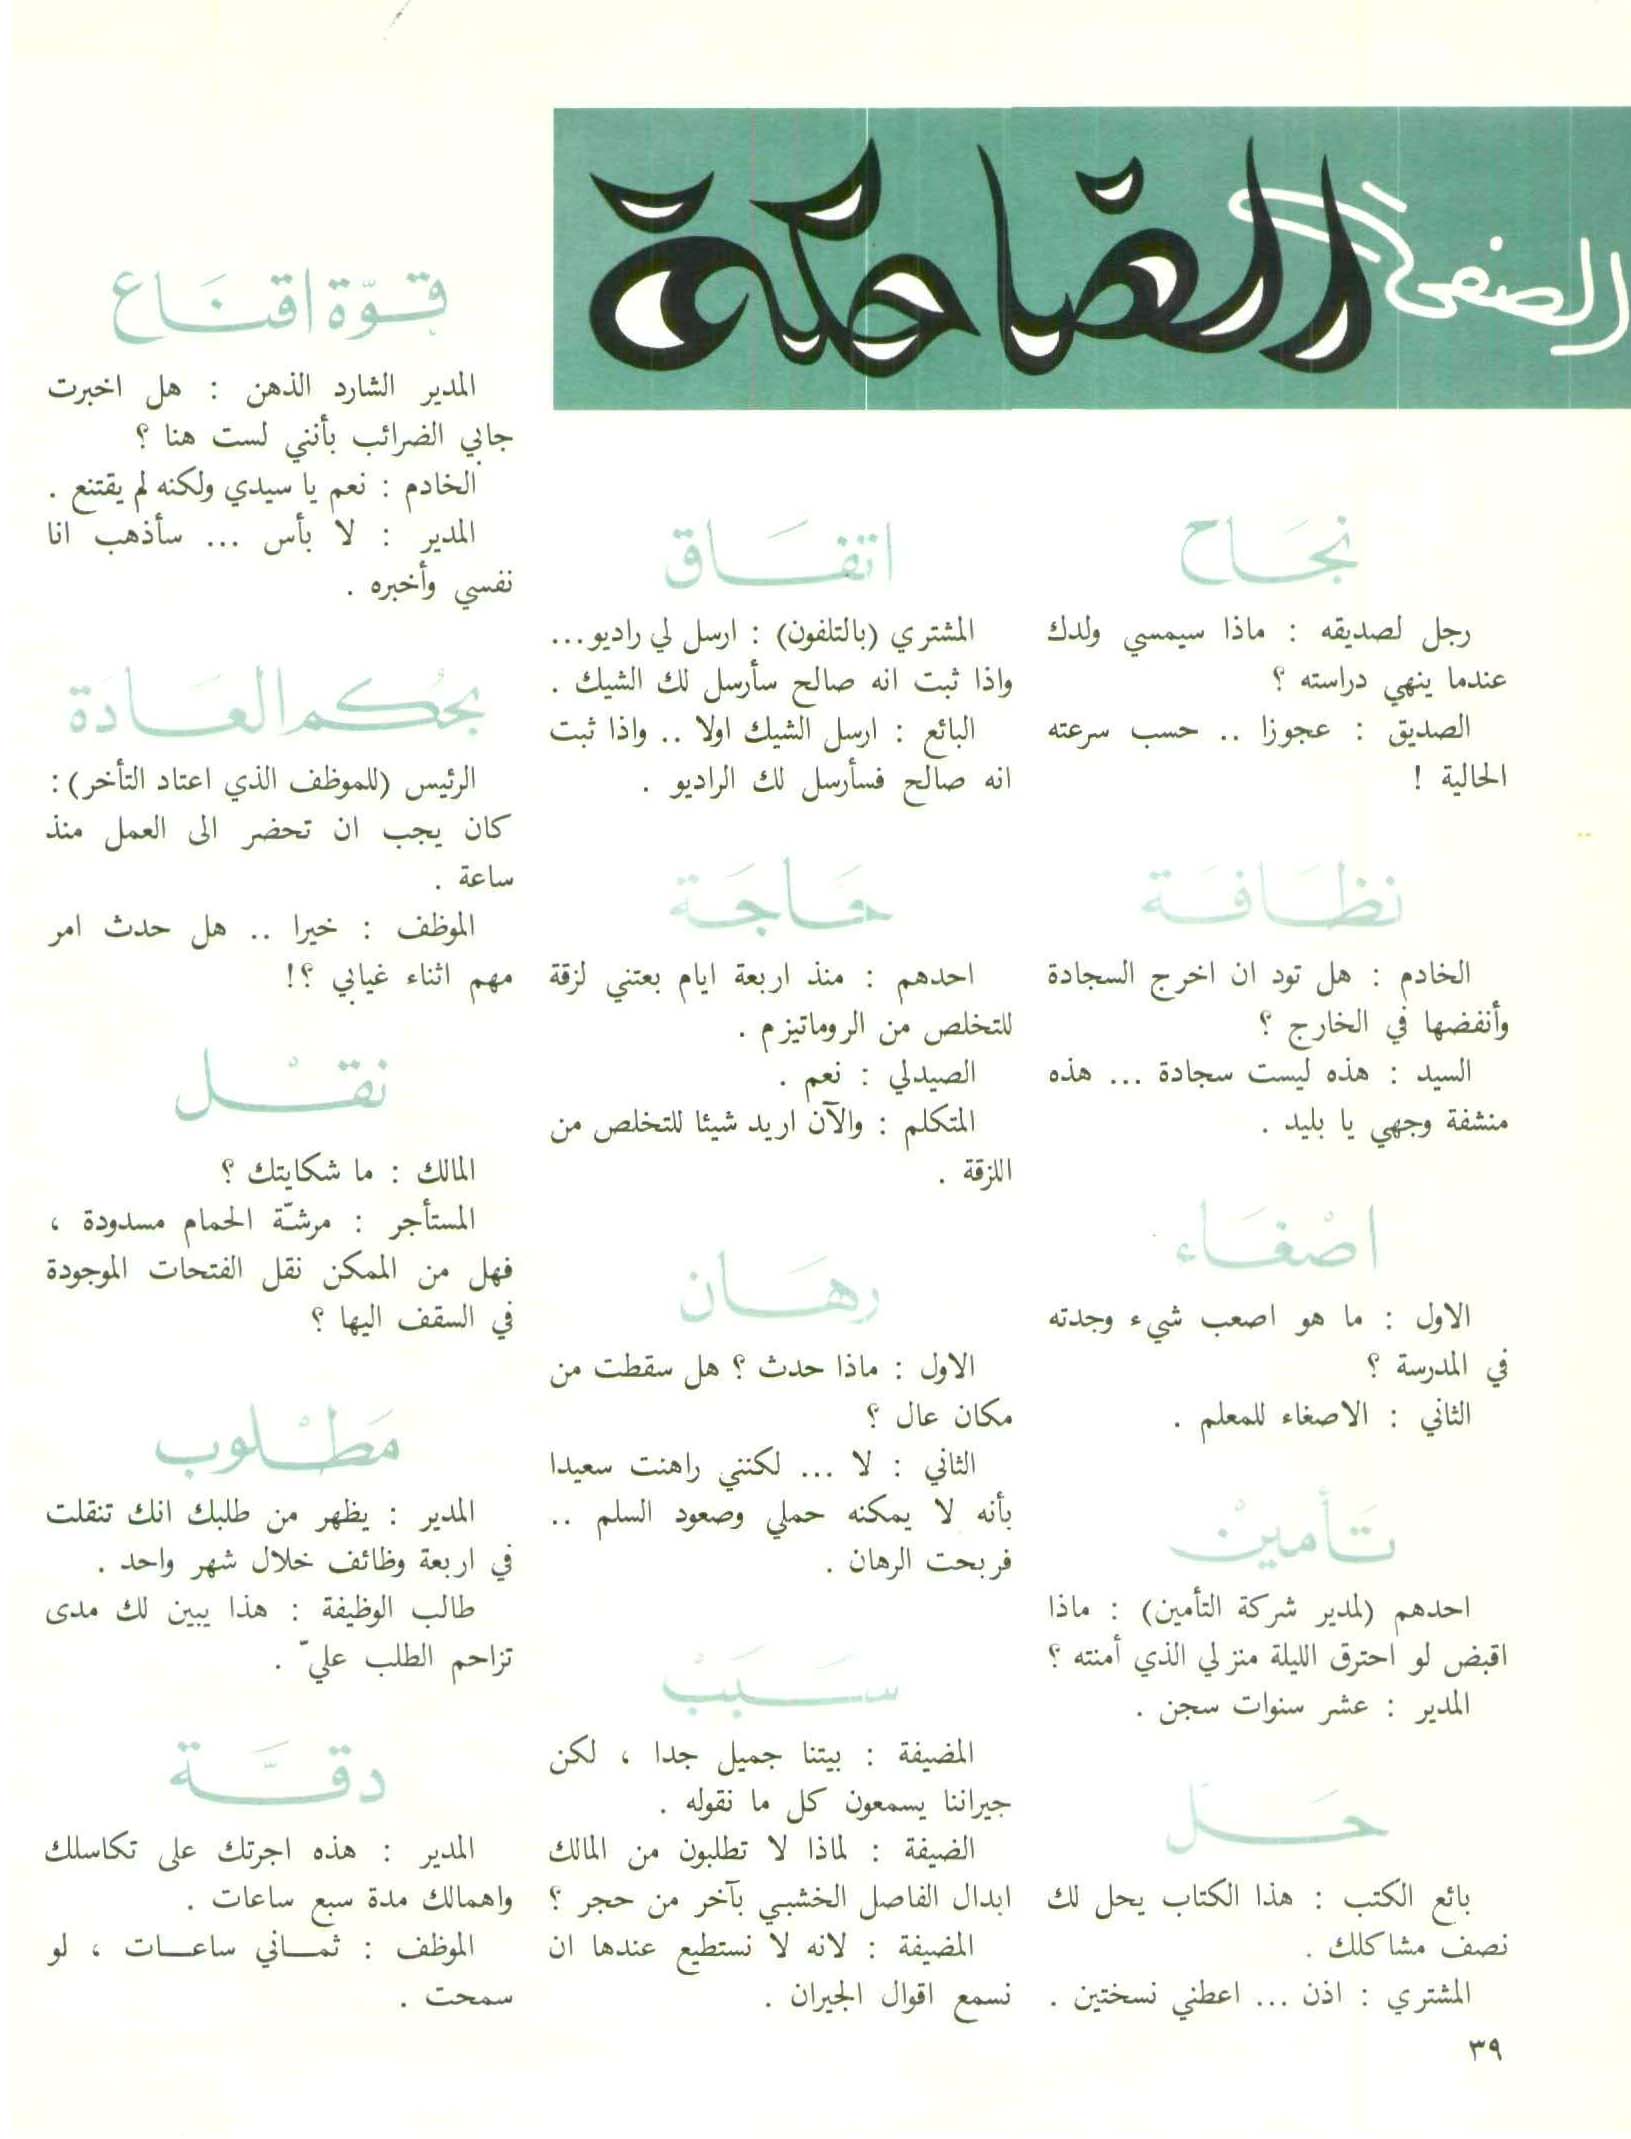 الصفحة الضاحكة
نجاح
رجل لصديقه : ماذا سيمسي ولدك
عندما ينهي دراسته ؟
الصديق : عجوزا .. حسب سرعته
الحالية !
نظافة
الخادم : هل تود ان اخرج السجادة
وأنفضها في الخارج ؟
السيد : هذه ليست سجادة ... هذه
منشفة وجهي يا بليد .
اصغاء
الاول : ما هو اصعب شيء وجدته
في المدرسة ؟
الثاني : الاصغاء للمعلم .
تأمين
احدهم (لمدير شركة التأمين) : ماذا
اقبض لو احترق الليلة منزلي الذي أمنته ؟
المدير : عشر سنوات سجن .
حل
بائع الكتب : هذا الكتاب يحل لك
نصف مشاكلك .
المشتري : اذن ... اعطني نسختين .
اتفاق
المشتري (بالتلفون) : ارسل لي راديو...
واذا ثبت انه صالح سأرسل لك الشيك .
البائع : ارسل الشيك اولا .. واذا ثبت
انه صالح فسأرسل لك الراديو .
حاجة
احدهم : منذ اربعة ايام بعتني لزقة
للتخلص من الروماتيزم .
الصيدلي : نعم .
المتكلم : والآن اريد شيئا للتخلص من
اللزقة .
رهان
الاول : ماذا حدث ؟ هل سقطت من
مكان عال ؟
الثاني : لا ... لكنني راهنت سعيدا
بأنه لا يمكنه حملي وصعود السلم ..
فربحت الرهان .
سبب
المضيفة : بيتنا جميل جدا ، لكن
جيراننا يسمعون كل ما نقوله .
الضيفة : لماذا لا تطلبون من المالك
ابدال الفاصل الخشبي بآخر من حجر ؟
المضيفة : لانه لا نستطيع عندها ان
نسمع اقوال الجيران .
قوّة اقناع
المدير الشارد الذهن : هل اخبرت
جابي الضرائب بأنني لست هنا ؟
الخادم : نعم يا سيدي ولكنه لم يقتنع .
المدير : لا بأس ... سأذهب انا
نفسي وأخبره .
بحكم العادة
الرئيس (للموظف الذي اعتاد التأخر) :
كان يجب ان تحضر الى العمل منذ
ساعة .
الموظف : خيرا .. هل حدث امر
مهم اثناء غيابي ؟!
نقل
المالك : ما شكايتك ؟
المستأجر : مرشّة الحمام مسدودة ،
فهل من الممكن نقل الفتحات الموجودة
في السقف اليها ؟
مطلوب
المدير : يظهر من طلبك انك تنقلت
في اربعة وظائف خلال شهر واحد .
طالب الوظيفة : هذا يبين لك مدى
تزاحم الطلب عليّ .
دقّة
المدير : هذه اجرتك على تكاسلك
واهمالك مدة سبع ساعات .
الموظف : ثماني ساعات ، لو
سمحت .
٣٩